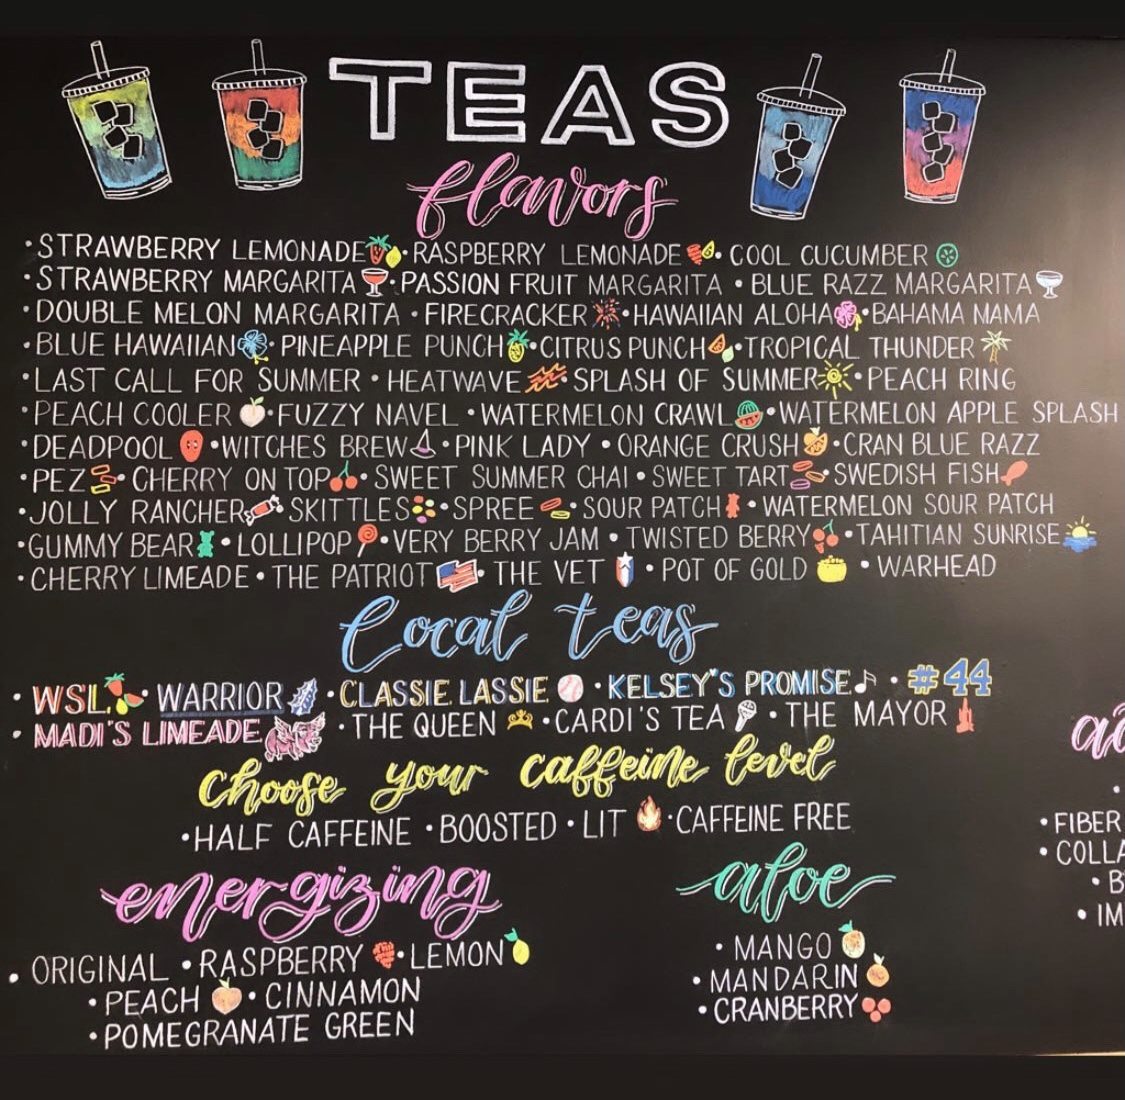 TEAS
flavors
• STRAWBERRY LEMONADE • RASPBERRY LEMONADE • COOL CUCUMBER
• STRAWBERRY MARGARITA • PASSION FRUIT MARGARITA • BLUE RAZZ MARGARITA
• DOUBLE MELON MARGARITA • FIRECRACKER • HAWAIIAN ALOHA • BAHAMA MAMA
• BLUE HAWAIIAN • PINEAPPLE PUNCH • CITRUS PUNCH • TROPICAL THUNDER
• LAST CALL FOR SUMMER • HEATWAVE • SPLASH OF SUMMER • PEACH RING
• PEACH COOLER • FUZZY NAVEL • WATERMELON CRAWL • WATERMELON APPLE SPLASH
• DEADPOOL • WITCHES BREW • PINK LADY • ORANGE CRUSH • CRAN BLUE RAZZ
• PEZ • CHERRY ON TOP • SWEET SUMMER CHAI • SWEET TART • SWEDISH FISH
• JOLLY RANCHER • SKITTLES • SPREE • SOUR PATCH • WATERMELON SOUR PATCH
• GUMMY BEAR • LOLLIPOP • VERY BERRY JAM • TWISTED BERRY • TAHITIAN SUNRISE
• CHERRY LIMEADE • THE PATRIOT • THE VET • POT OF GOLD • WARHEAD
local teas
• WSL • WARRIOR • CLASSIE LASSIE • KELSEY'S PROMISE • #44
• MADI'S LIMEADE • THE QUEEN • CARDI'S TEA • THE MAYOR
choose your caffeine level
• HALF CAFFEINE • BOOSTED • LIT • CAFFEINE FREE
energizing
• ORIGINAL • RASPBERRY • LEMON
• PEACH • CINNAMON
• POMEGRANATE GREEN
aloe
• MANGO
• MANDARIN
• CRANBERRY
ad
•
• FIBER
• COLLA
• B
• IM